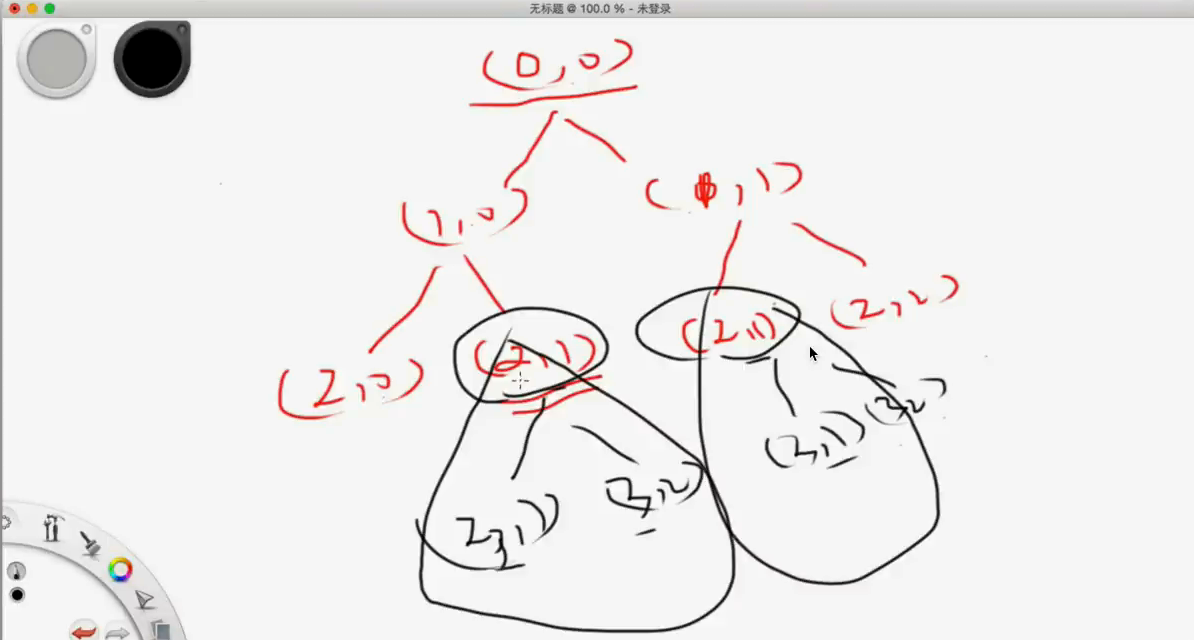 无标题 @ 100.0 % - 未登录
(0,0)
(1,0)
(2,0) (2,1) (2,1) (2,2)
(3,1) (3,2)
(3,2)